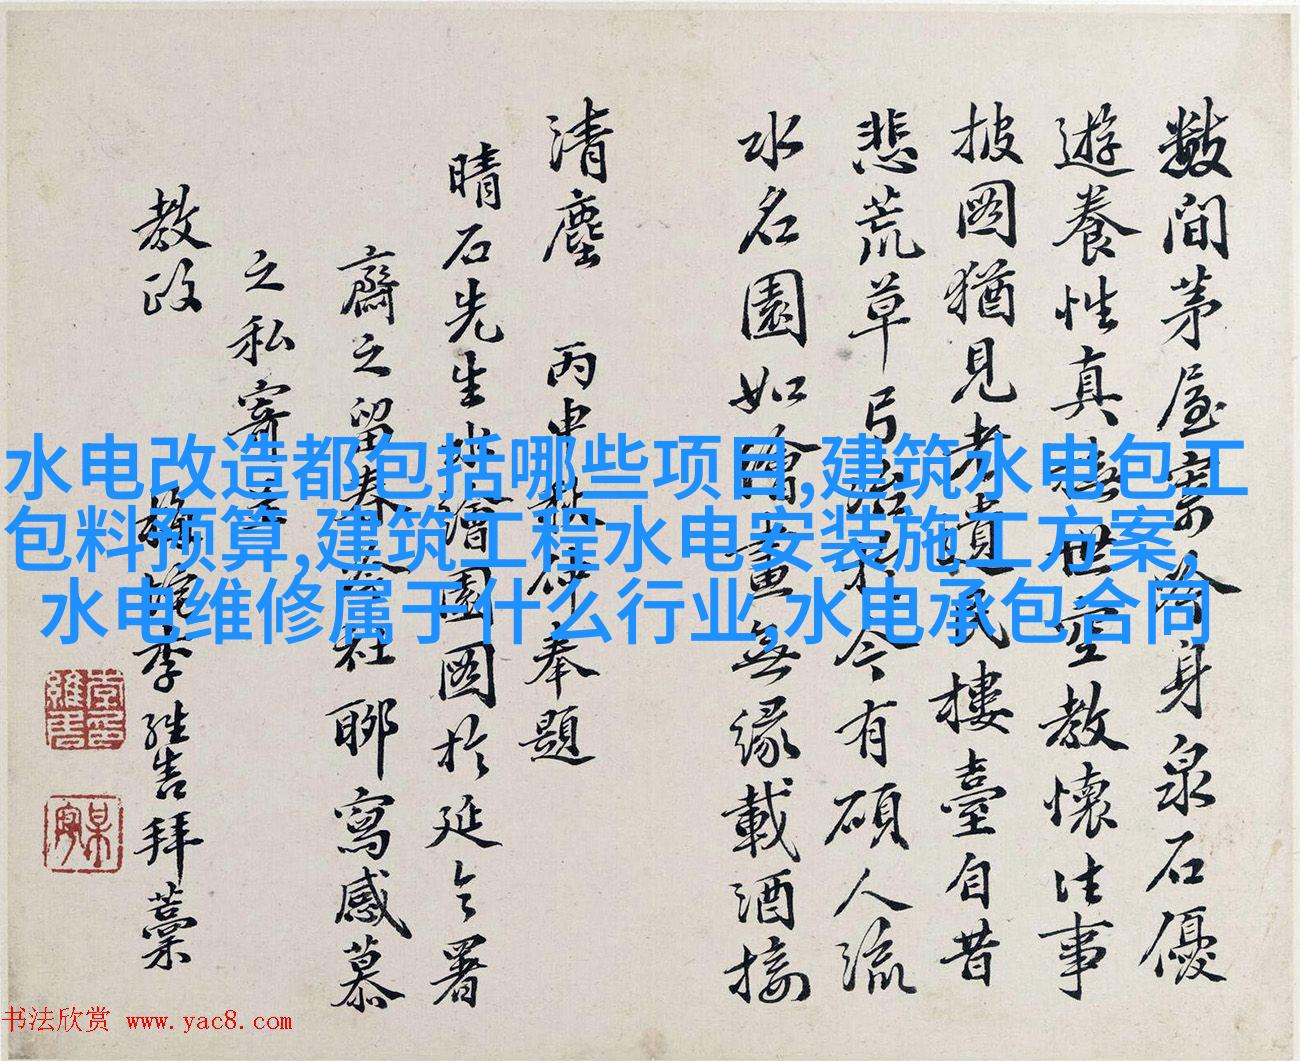 數間茅屋寄身泉石優
遊養性真世空教懷往事
披圖猶見老遺民樓臺自昔
悲荒草弓於今有碩人流
水名園如繪畫無緣載酒接
清塵 丙申秋仲奉題
晴石先生繪園圖於延令署
齋之留春社聊寫感慕
之私寄
教政
李維拜藁
水电改造都包括哪些项目,建筑水电包工
包料预算,建筑工程水电安装施工方案,
水电维修属于什么行业,水电承包合同
书法欣赏 www.yac8.com